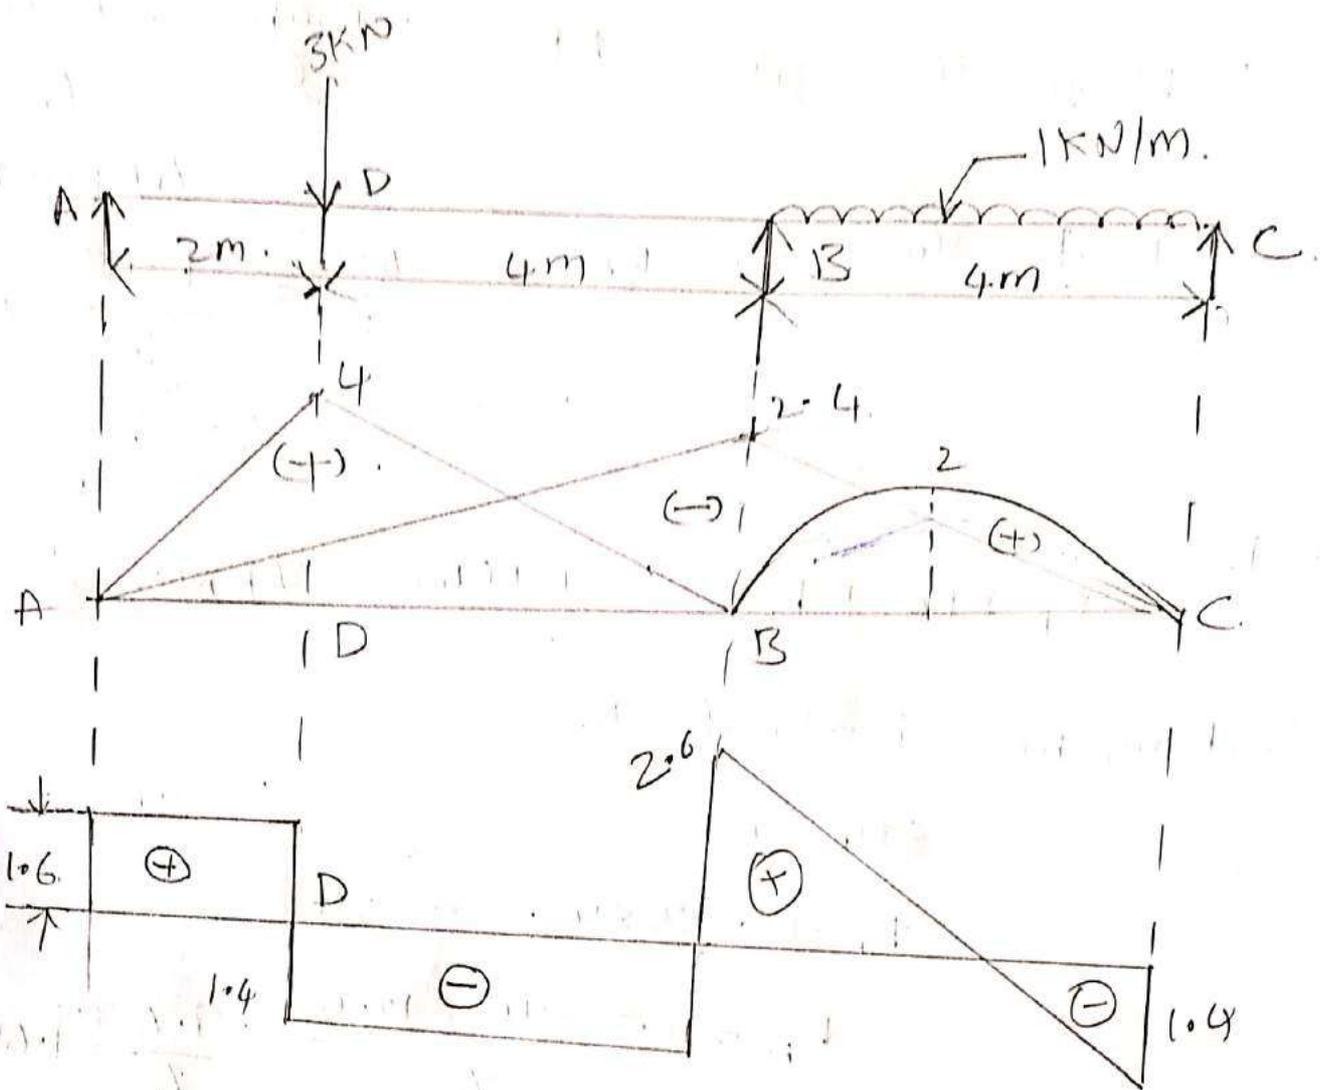 3KN
1KN/m.
A D
2m. 4m B 4m. C.
4
2.4
2
(+) (-) (+)
A D B C.
2.6
1.6 + D +
1.4 - - 1.4